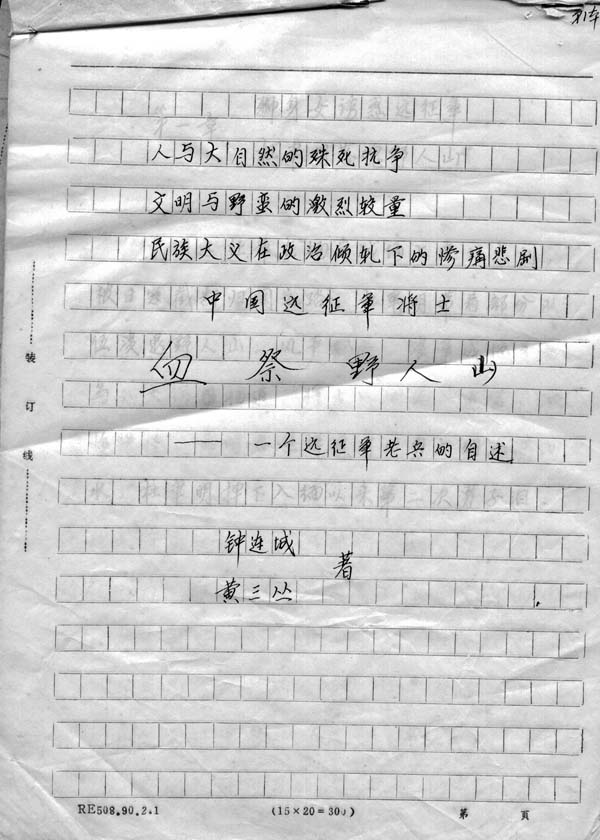 人与大自然的殊死抗争
文明与野蛮的激烈较量
民族大义在政治倾轧下的惨痛悲剧
中国远征军将士
血祭野人山
—— 一个远征军老兵的自述
钟连城
黄三丛
著
装订线
RE508.90.2.1 (15×20=300) 第 页